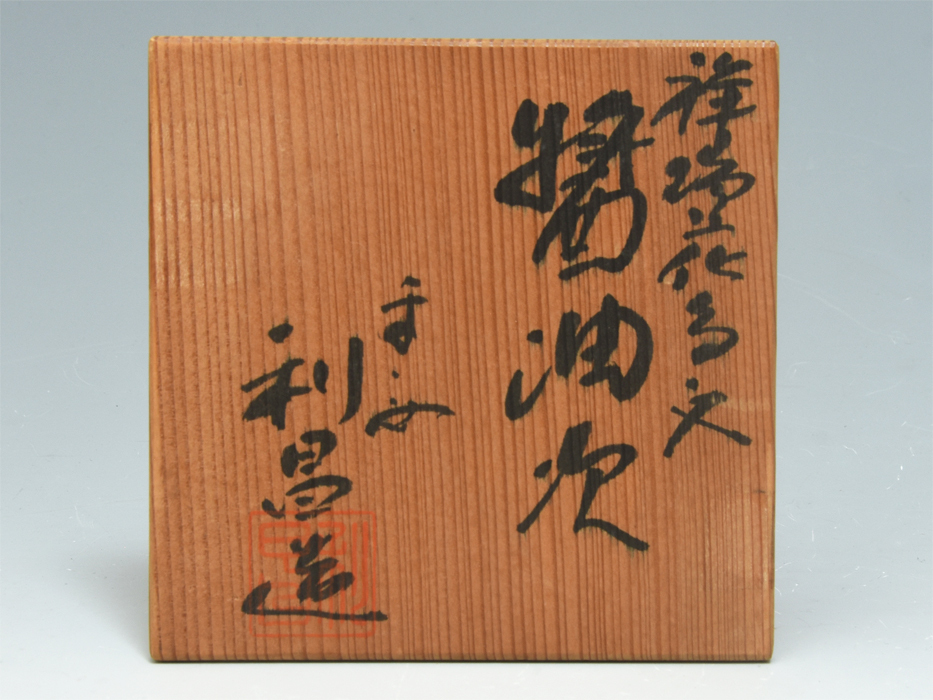 祥瑞花鳥文
醤油次
平安
利昌造